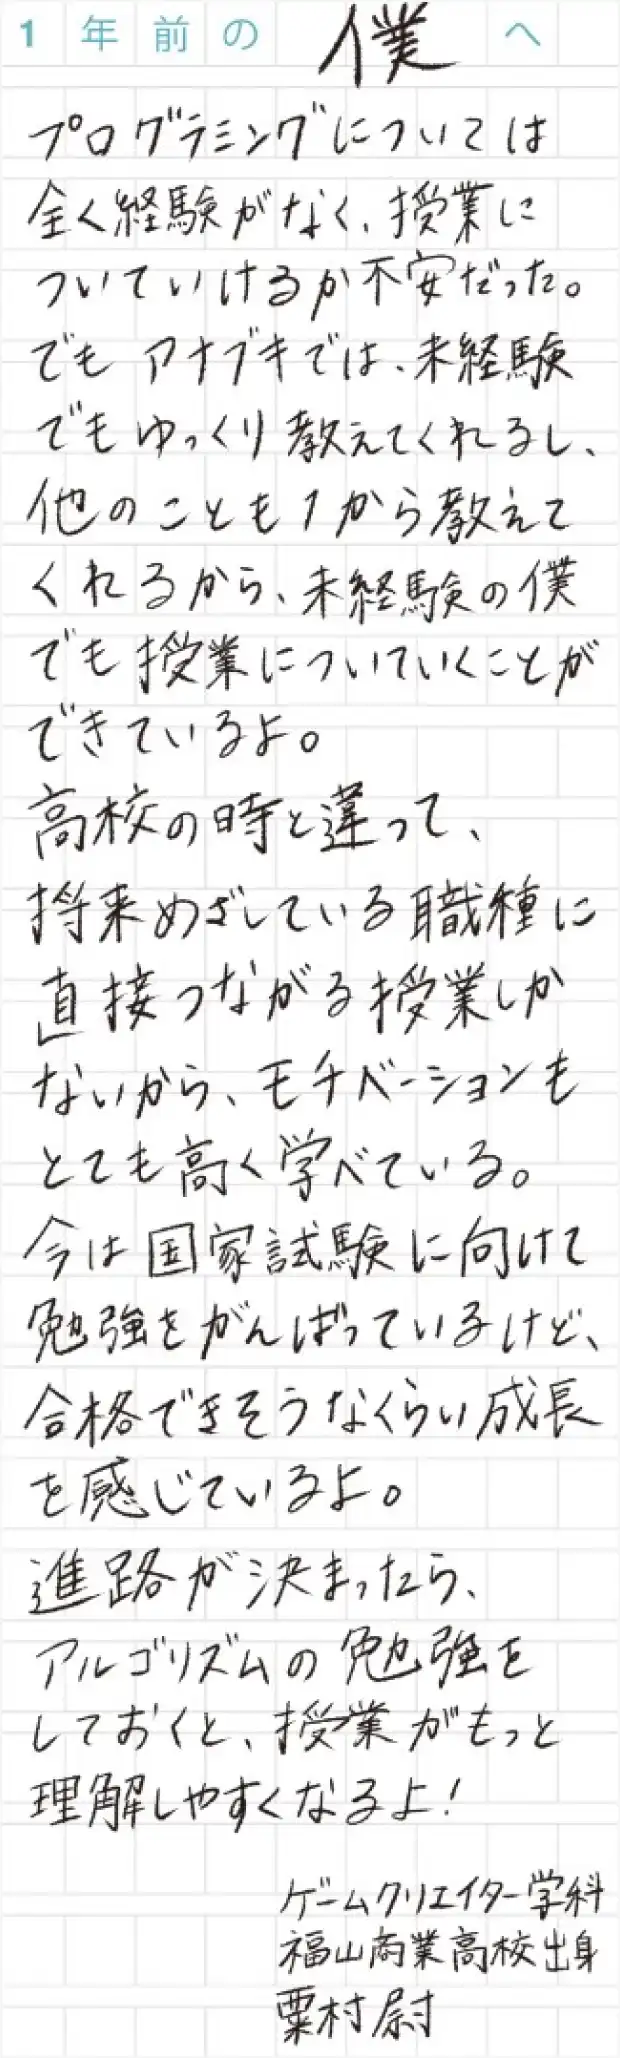 1年前の僕へ
プログラミングについては
全く経験がなく、授業に
ついていけるか不安だった。
でもアナブキでは、未経験
でもゆっくり教えてくれるし、
他のことも1から教えて
くれるから、未経験の僕
でも授業についていくことが
できているよ。
高校の時と違って、
将来めざしている職種に
直接つながる授業しか
ないから、モチベーションも
とても高く学べている。
今は国家試験に向けて
勉強をがんばっているけど、
合格できそうなくらい成長
を感じているよ。
進路が決まったら、
アルゴリズムの勉強を
しておくと、授業がもっと
理解しやすくなるよ!
ゲームクリエイター学科
福山商業高校出身
粟村尉